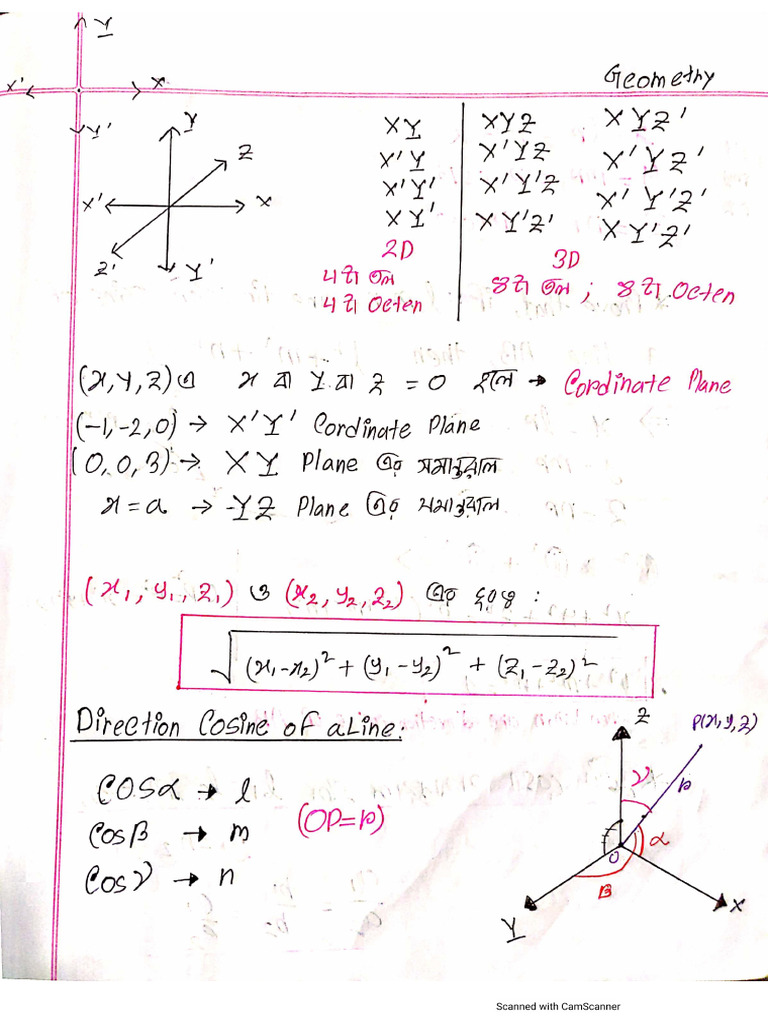 Geometry
Y
X' X
Y'
Y
Z
X' X
Z' Y'
XY
X'Y
X'Y'
XY'
2D
4টা তল
4টা Octen
XYZ XYZ'
X'YZ X'YZ'
X'Y'Z X'Y'Z'
XY'Z' XY'Z'
3D
8টা তল ; 8টা Octen
(x,y,z) এ x বা y বা z = 0 হলে → Cordinate Plane
(-1,-2,0) → X'Y' Cordinate Plane
(0,0,3) → XY Plane এর সমান্তরাল
x=a → YZ Plane এর সমান্তরাল
(x₁,y₁,z₁) ও (x₂,y₂,z₂) এর দূরত্ব :
√(x₁-x₂)² + (y₁-y₂)² + (z₁-z₂)²
Direction Cosine of a Line:
Cosα → l
Cosβ → m
(OP=r)
Cosγ → n
Z
P(x,y,z)
γ r
O α
β
Y X
Scanned with CamScanner